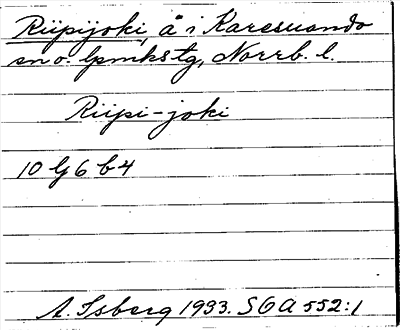 Riipijoki, å i Karesuando
sn o. lpmkstg, Norrb. l.
Riipi-joki
10 lj 6 b 4
A. Isberg 1933. SOA 552:1